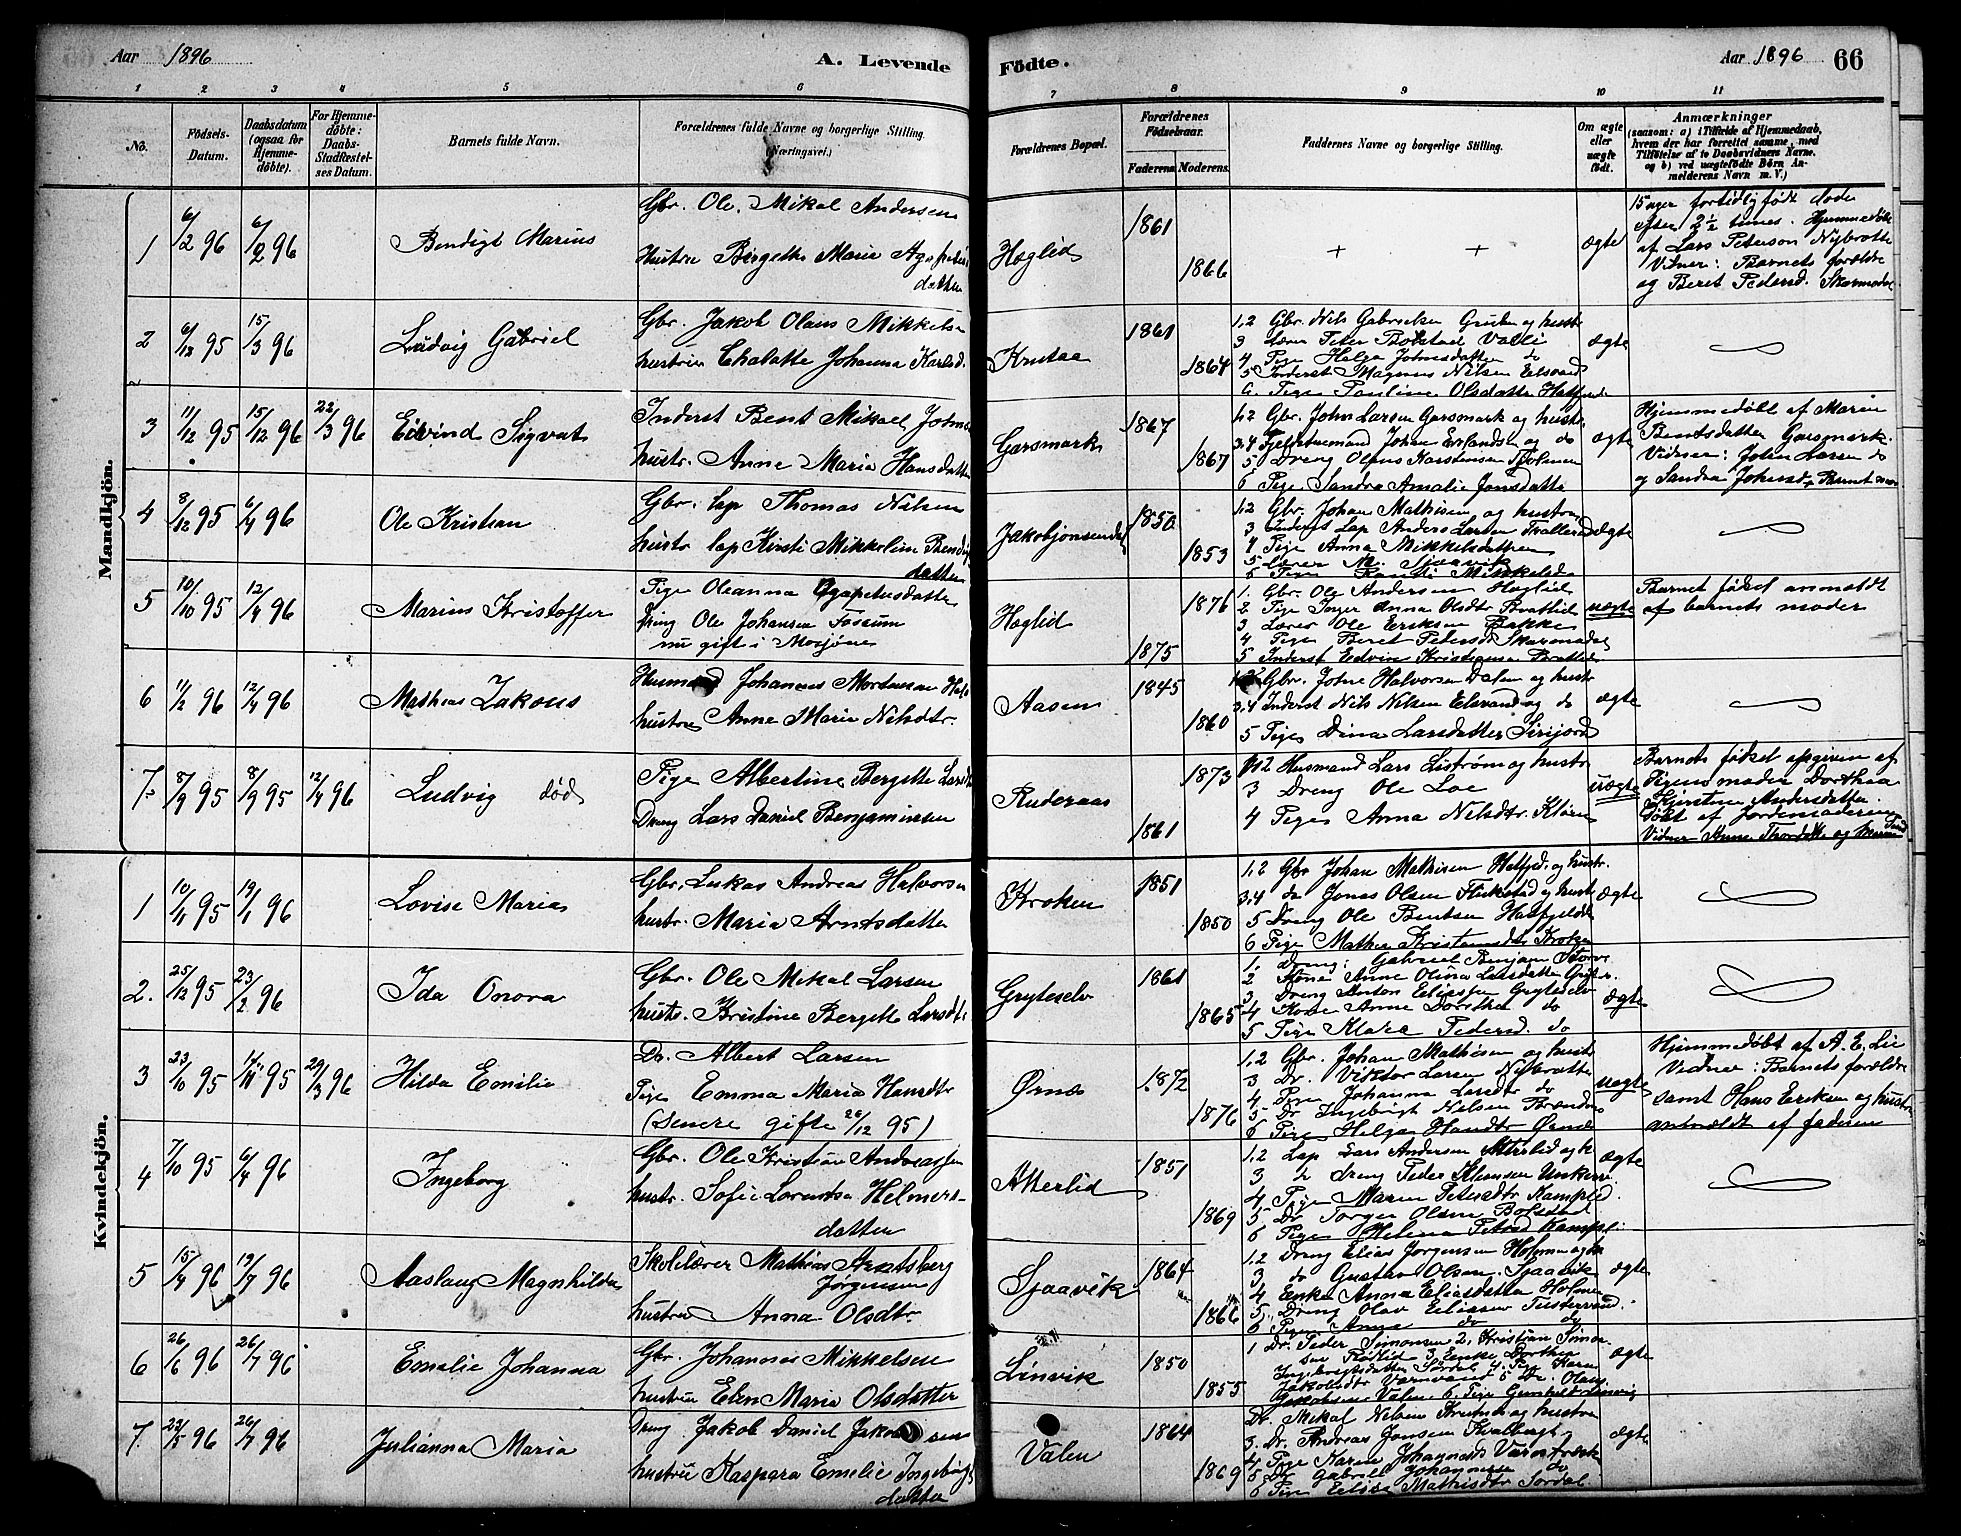 Aar 1896
A. Levende Fødte.
Aar 1896 66
1 2 3 4 5 6 7 8 9 10 11
No.
Fødsels-Datum.
Daabsdatum (ogsaa for Hjemmedøbte).
For Hjemmedøbte: Daabs-Stadfæstelses Datum.
Barnets fulde Navn.
Forældrenes fulde Navne og borgerlige Stilling. (Næringsvei.)
Forældrenes Bopæl.
Forældrenes Fødselsaar.
Faderens. Moderens.
Faddernes Navne og borgerlige Stilling.
Om ægte eller uægte født.
Anmærkninger
(saasom: a) i Tilfælde af Hjemmedaab, hvem der har forrettet samme, med Tilføielse af to Daabsvidners Navne, og b) ved uægtefødte Børn Anmelderens Navn m. V.)
Mandkjøn.
1 6/2 96 6/2 96 Bendigt Marius
Gbr. Ole Mikal Andersen
Hustru Bergette Maria Agapetus
datter
Hæglid 1861 1866 + + ægte
15 uger fortidlig født døde
efter 2 1/2 times. Hjemmedøbt
af Lars Peterson Nybrotte
Vidner: Barnets forældre
og Beret Pedersd. Skarmodal
2 6/12 95 15/3 96 Ludvig Gabriel
Gbr. Jakob Olaus Mikkels
hustru Johanna Karlsd.
Krutaa 1861 1864 ægte
1,2 Gbr. Nils Gabrielsen og hustr
3 Lærer Peter Bolstad
4 Pige Helga Johnsdatter do
5 Inderst Magnus Nilsen Elsvand
6 Pige Pauline Olsdatter
3 11/12 95 15/12 96 22/3 96 Eivind Sigvat
Inderst Bent Mikael Johns
hustr. Anne Maria Hansdatter
Garsmark 1867 1867 ægte
1,2 Gbr. John Larsen Garsmark og hustr.
3,4 Johan Erlandsen og do
5 Dreng Olaus Karstensen
6 Pige Sandra Amalie Jonsdatter
Hjemmedøbt af Maria
Bentsdatter Garsmark.
Vidner: John Larsen do
og Sandra
4 8/12 95 6/4 96 Ole Kristian
Gbr. lap Thomas Nilsen
hustr lap Kirsti Mikkeline Bendigs
datter
Jakobjonsendal 1850 1853 ægte
1,2 Gbr. Johan Mathisen og hustru
3 Inderst Lap Anders Larsen
4 Pige Anna Mikkelsdatter
5 Lærer M. Sjaavik
6 Pige Mikkelsd
5 10/10 95 12/4 96 Marius Kristoffer
Pige Oleanna Agapetusdatter
Dreng Ole Johansen Fossum
nu gift i Mosjøen
Hæglid 1876 1875 uægte
1. Gbr. Ole Andersen Hæglid
2 Pige Inger Anna Olsdtr Brattlid
3 Lærer Ole Eriksen Bakke
4 Pige Beret Pedersd Skarmodal
5 Inderst Edvin Kristiansen Bratlid
Barnets fødsel anmeldt
af barnets moder
6 11/2 96 12/4 96 Mathias Zakous
Husmand Johannes Mortensen
hustru Anne Maria Nelsdtr.
Aasen 1845 1860 ægte
1,2 Gbr. Johne Halvorsen Dalen og hustr
3,4 Inderst Nils Nelsen Elsvand og do
5 Pige Dina Larsdatter Sirijord
7. 8/9 95 8/9 95 12/4 96 Ludvig død
Pige Albertine Bergitte Larsdt
Dreng Lars Daniel Benjaminsen
Ruderaas 1873 1861 uægte
1,2 Husmand Lars Listrøm og hustr
3 Dreng Ole Loe
4 Pige Anna Nelsdtr.
Barnets fødsel opgiven af
Pigens moder Dorthea
Kjerstine Andersdatter.
døbt af Jordemoderen
Kvindekjøn.
1 10/11 95 19/1 96 Lovise Maria
Gbr. Lukas Andreas Halvorsen
hustr. Maria Arntsdatter
Kroken 1851 1850 ægte
1,2 Gbr. Johan Mathisen Hatfjed. og hustr.
3,4 do Jonas Olsen og hustr
5 Dreng Ole Bentsen Hatfjelddal
6 Pige Mathea Kristensdtr Kroken
2. 25/12 95 23/2 96 Ida Onora
Gbr. Ole Mikal Larsen
hustr. Kristine Bergitte Larsdtr
Gryteselv 1861 1865 ægte
1. Dreng: Gabriel Benjam
2 Kone Anne Olina Larsdatter
3 Dreng Anton Eliassen Gryteselv
4 Kone Anne Dorthea do
5 Pige Klara Pedersd. do
3 23/10 95 14/11 95 29/3 96 Hilda Emilie
Dr. Albert Larsen
Pige Emma Maria Hansdtr
(senere gifte 26/12 95)
Ørnes 1872 1876 uægte
1,2 Gbr. Johan Mathisen og hustr
3 Dr. Viktor Larsen Nybrotte
4 Pige Johanna Larsdtr do
5 Dr Ingebrigt Nelsen
6 Pige Helga Hansdtr Ørnes
Hjemmedøbt af A. E. Lie
Vidner: Barnets forældre
samt Hans Eriksen og hustr
anmeldt af faderen
4 7/10 95 6/4 96 Ingeborg
Gbr. Ole Kristian Andreassen
hustr. Sofie Lorentse Helmers-
datter
Atterlid 1851 1869 ægte
1,2 Lap Lars Andersen
3 do Dreng Peder Klemsen Unkern
4 Pige Maren Petersdtr
5 Dr Torger Olsen Bolstad
6 Pige Helena
5 15/4 96 19/7 96 Aaslaug Magnhilda
Skolelærer Mathias Arntsberg
Jørgensen
hustru Anna Olsdtr.
Sjaavik 1864 1866 ægte
1,2 Dreng Elias Jørgensen Holmen
3 do Gustav Olsen Sjaavik
4 Enke Anna Eliasdatter Holmen
5. Dreng Olav Eliassen
6 Pige Anna do
6 26/6 96 26/7 96 Emelie Johanna
Gbr. Johannes Mikkelsen
hustru Elen Maria Olsdatter
Linvik 1850 1855 ægte
1 Dr. Peder Simonsen 2, Kristian Simon
sen 3, Enke Dorthea
Ingebrigtsdatter Sørdal 4 Pige Karen
Jakobsdtr Varnvand 5 Dr. Olaus
Jakobsen Valen 6. Pige Gunhild
7. 23/5 96 26/7 96 Julianna Maria
Dreng Jakob Daniel Jakobsen
hustru Kaspara Emelie Ingebrigts
datter
Valen 1864 1869 ægte
Dr. Mikal Nelsen og hustru
3. Dr. Andreas Jonsen
4 Pige Karen Johannesd
5 Dr Gabriel Johannesen do
6 Pige Elise Mathisdtr Sørdal